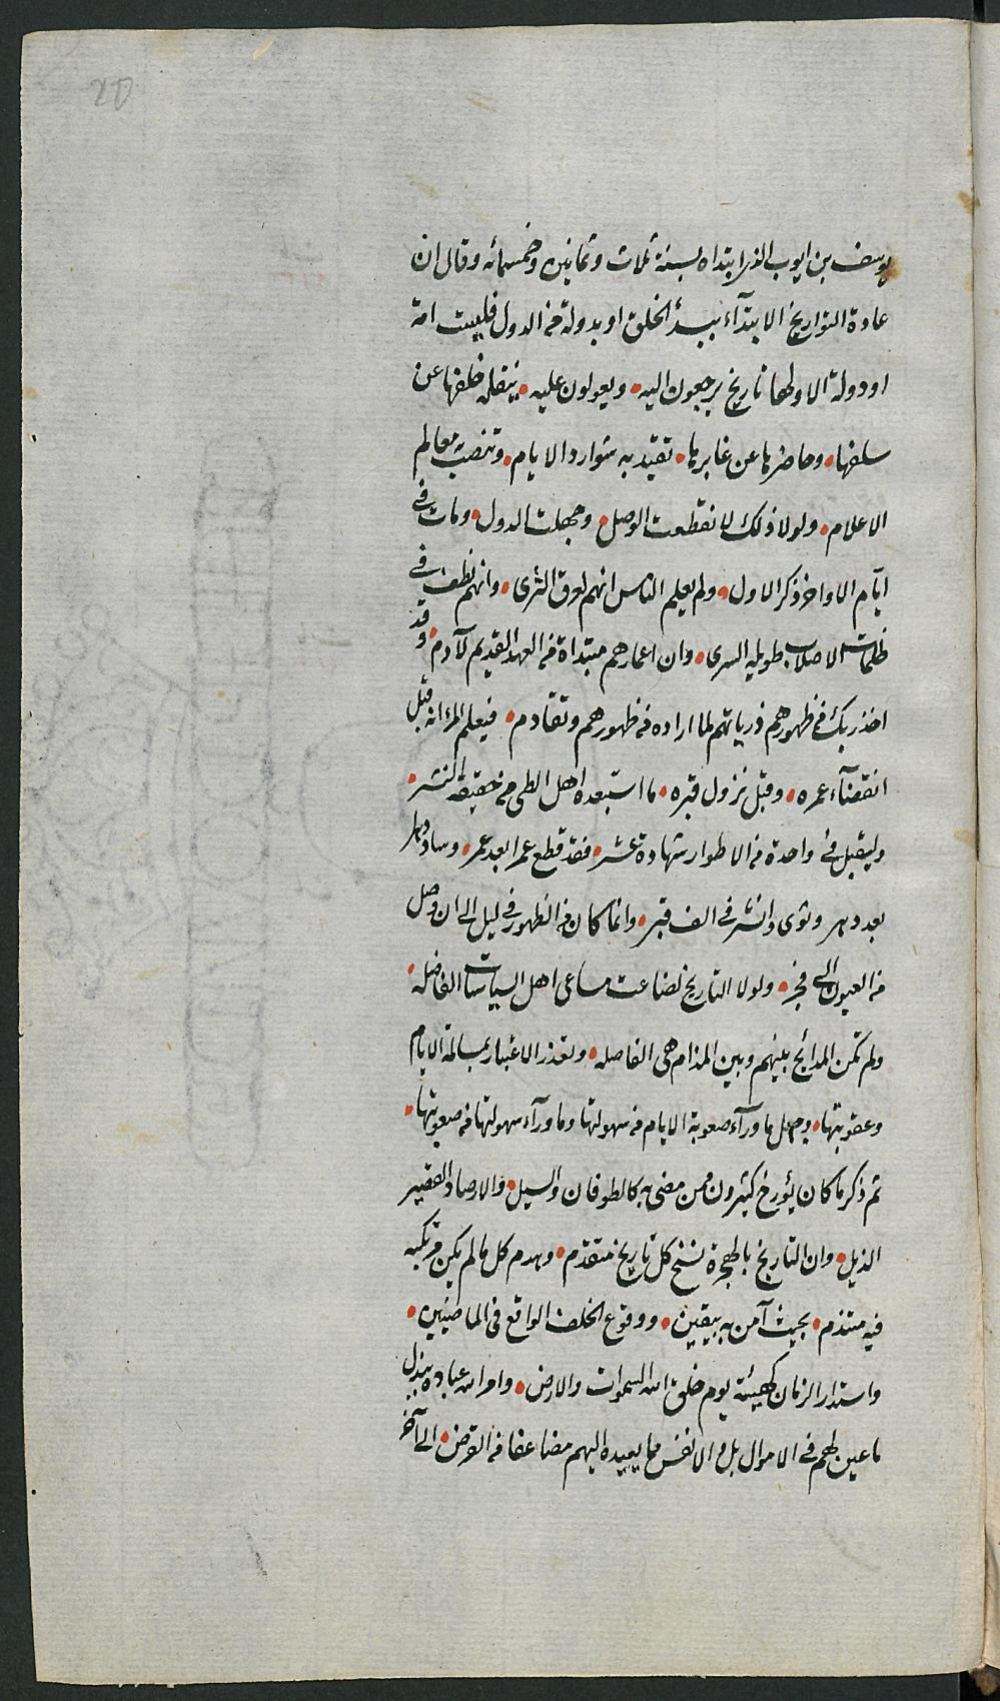 يوسف بن ايوب الذى ابتداه بسنة ثلاث وثمانين وخمسمائه وقال ان
عادة التواريخ الابتدآء ببدأ الخلق او بدولة من الدول فليست امة
او دولة الا ولها تاريخ يرجعون اليه • ويعولون عليه • ينقله خلفها عن
سلفها • وحاضرها عن غابرها • تقيد به شوارد الايام • وتنصب به معالم
الاعلام • ولولا ذلك لانقطعت الوصل • وجهلت الدول • ومات فى
ايّام الاواخر ذكر الاول • ولم يعلم الناس انهم لعرق الثرى • وانهم نطف فى
ظلمات الاصلاب طويله السرى • وان اعمارهم مبتداة من العهد القديم لآدم • وقد
اخذ ربك فى ظهورهم ذرياتهم لما اراده من ظهورهم وتقادم • فيعلم المرء انه قبل
انقضآء عمره • وقبل نزول قبره • ما استبعده اهل الطى من حقيقة النشر •
وليقبل فى واحدة من الاطوار شهادة عشر • فقد قطع عمرا بعد عمر • وسار دهرا
بعد دهر وثوى وانشر فى الف قبر • وانما كان من الظهور فى ليل الى ان وصل
من العيون الى فجر • ولولا التاريخ لضاعت مساعى اهل السياسات الفاضله •
ولم تكن المدائح بينهم وبين المذام هى الفاصله • ولتعذر الاعتبار بمسالمة الايام
وعقوبتها • وجهل ما ورآء صعوبة الايام من سهولتها وما ورآء سهولتها من صعوبتها •
ثم ذكر ما كان يؤرخ كثيرون ممن مضى به كالطوفان والسيل • والارصاد القصير
الذيل • وان التاريخ بالهجرة نسخ كل تاريخ متقدم • وهدم كل ما لم يكن مرتكبه
فيه متندم • بحيث آمن به بيقين • ووقوع الخلف الواقع فى الماضيين •
واستدار الزمان كهيئة يوم خلق الله السموات والارض • وامر الله عباده ببذل
ما عين لهم فى الاموال بل والانفس مما يعيده اليهم مضاعفا من القرض • الى آخر